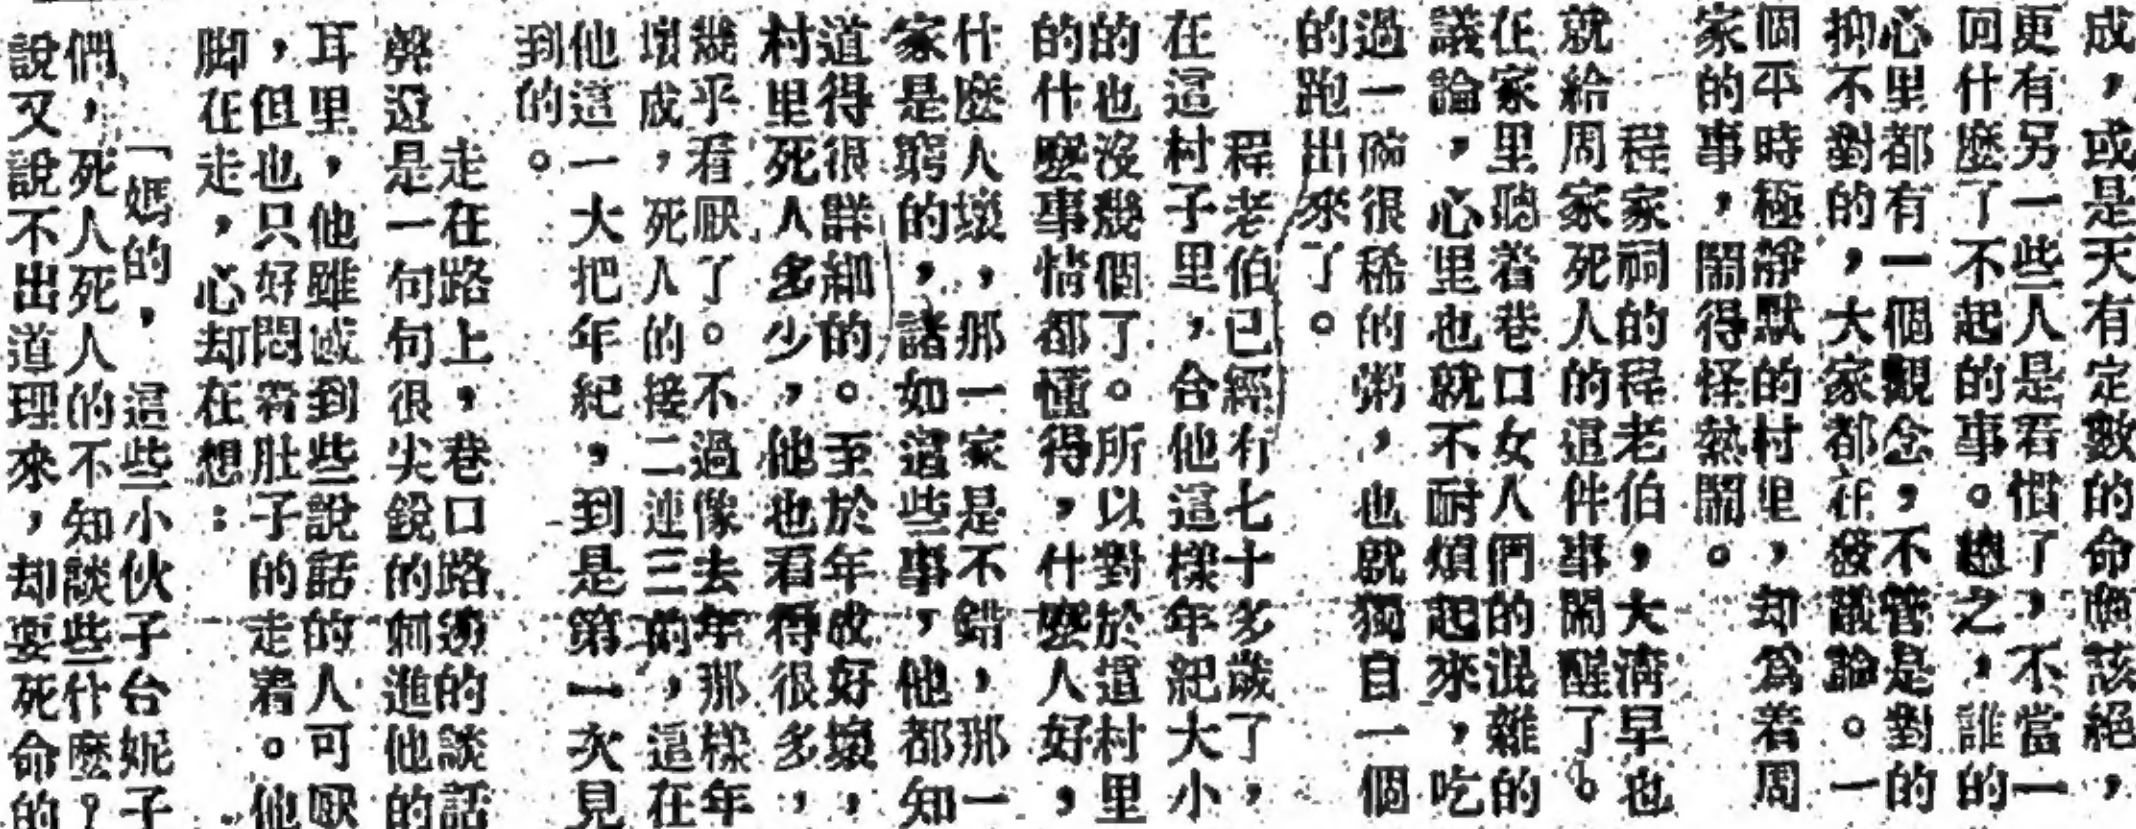 成，或是天有定數的命應該絕，
更有另一些人是看慣了，不當一
回什麼了不起的事。總之，誰的
心里都有一個觀念，不管是對的
抑不對的，大家都在發議論。一
個平時極靜默的村里，却爲着周
家的事，鬧得怪熱鬧。
程家祠的程老伯，大清早也
就給周家死人的這件事鬧醒了。
在家里聽着巷口女人們的混雜的
議論，心里也就不耐煩起來，吃
過一碗很稀的粥，也就獨自一個
的跑出來了。
程老伯已經有七十多歲了，
在這村子里，合他這樣年紀大小
的也沒幾個了。所以對於這村里
的什麼事情都懂得，什麼人好，
什麼人壞，那一家是不錯，那一
家是窮的，諸如這些事，他都知
道得很詳細的。至於年成好壞，
村里死人多少，他也看得很多，
幾乎看厭了。不過像去年那樣年
壞成，死人的接二連三的，這在
他這一大把年紀，到是第一次見
到的。
走在路上，巷口路邊的談話
聲逕是一句句很尖銳的刺進他的
耳里，他雖感到些說話的人可厭
，但也只好悶着肚子的走着。他
脚在走，心却在想：
「媽的，這些小伙子台妮子
們，死人死人的不知談些什麼？
說又說不出道理來，却要死命的